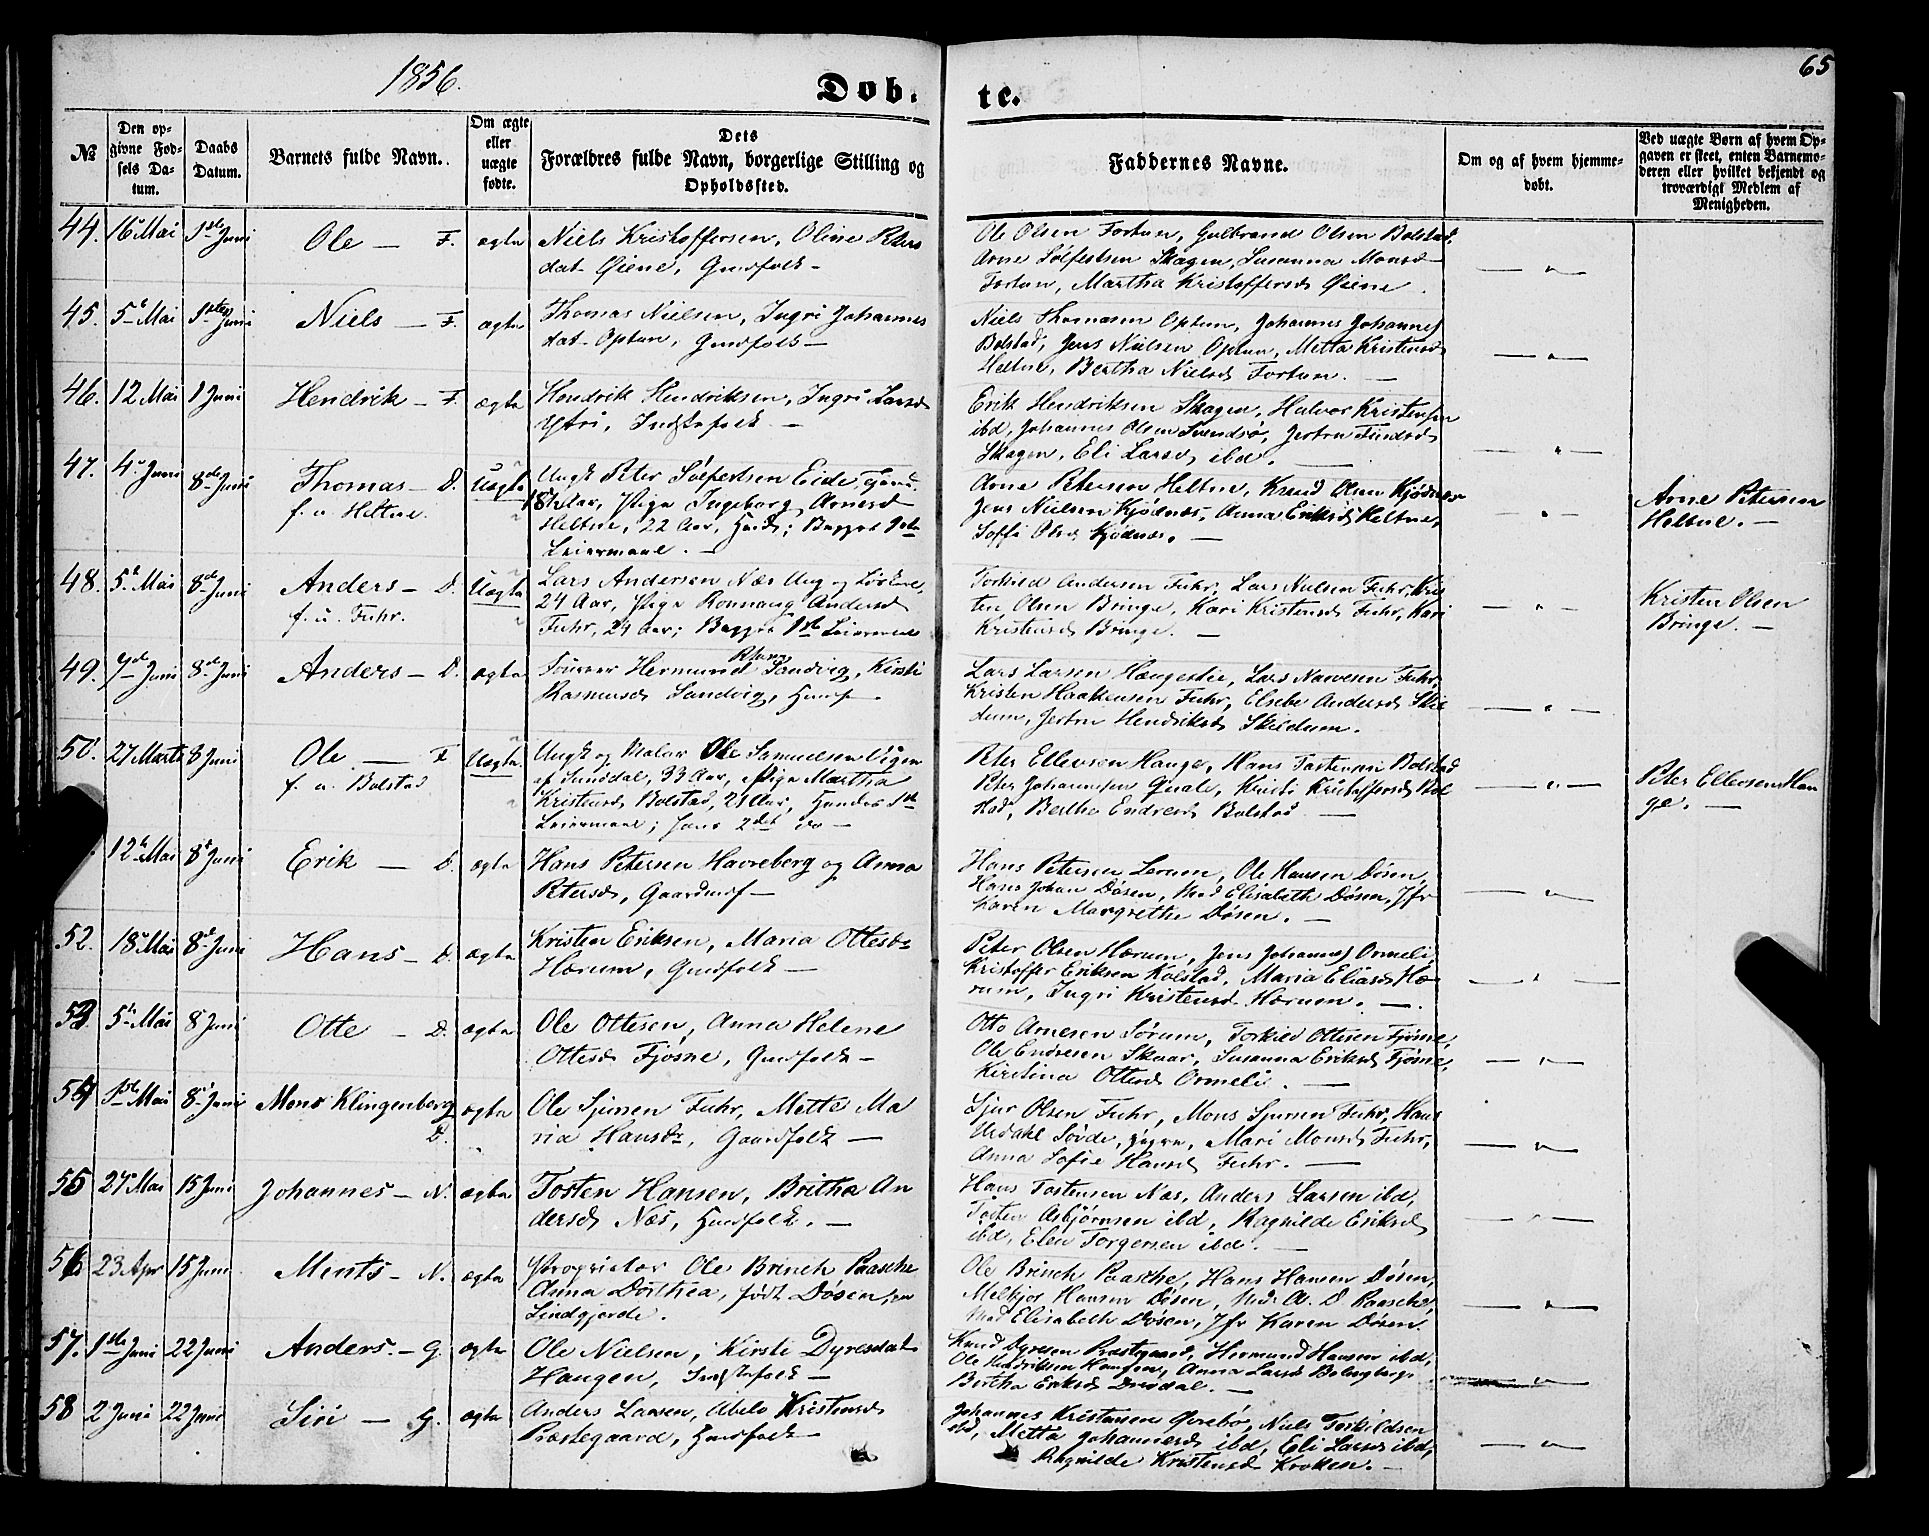 1856.
Døb. te.
65
№
Den opgivne Fødsels Datum.
Daabs Datum.
Barnets fulde Navn.
Om ægte eller uægte fødte.
Dets Forældres fulde Navn, borgerlige Stilling og Opholdssted.
Faddernes Navne.
Om og af hvem hjemmedøbt.
Ved uægte Børn af hvem Opgaven er skeet, enten Barnemoderen eller hvilket bekjendt og troværdigt Medlem af Menigheden.
44. 16 Mai 1ste Juni Ole — F. ægte
Niels Kristoffersen, Oline Peters
dat. Øiene, Gmdfolk —
Ole Olsen Fortun, Gulbrand Olsen Bolstad,
Arne Sølfestsen Skagen, Susanna Monsd
Fortun, Martha Kristoffersd Øiene.
45. 5 Mai 1ste Juni Niels — F. ægte
Thomas Nielsen, Ingri Johannes
dat. Optun, Gmdfolk —
Niels Thomasen Optun, Johannes Johannes
Bolstad, Jens Nielsen Optun, Metta Kristensd
Heltne, Bertha Nielsd Fortun. —
46. 12 Mai 1 Juni Hendrik — F. ægte
Hendrik Hendriksen, Ingri Larsd
Ytri, Indstefolk —
Erik Hendriksen Skagen, Halvor Kristensen
ibd, Johannes Olsen
Skagen, Eli Larsd ibd. —
47. 4 Juni 8de Juni Thomas — D. Uægte
f. u. Heltne.
Ungk Peter Sølfestsen Eide,
18 Aar, Pige Ingeborg Arnesd
Heltne, 22 Aar, Begges 1ste
Leiermaal. —
Arne Petersen Heltne, Knud Olsen Kjødnæs
Jens Nielsen Kjødnæs, Anna Eriksd Heltne,
Soffi Olsd Kjødnæs. —
Arne Petersen
Heltne. —
48. 5 Mai 8de Juni Anders — D. Uægte
f. u. Fuhr.
Lars Andersen Næs Ung og Løskarl,
24 Aar, Pige Ronnaug Andersd
Fuhr, 24 Aar; Begges 1ste Leiermaal
Torkild Andersen Fuhr, Lars Nielsen Fuhr, Kris
ten Olsen Bringe, Kari Kristensd Fuhr, Kari
Kristensd Bringe. —
Kristen Olsen
Bringe. —
49. 7de Juni 8de Juni Anders — D. ægte
Hermund Sandvig, Kirsti
Rasmusd Sandvig, Husf —
Lars Larsen Haugestie, Lars Fuhr,
Kristen Haakensen Fuhr, Elsebe Andersd Skil
dum, Jertru Hendriksd Skildum.
50. 27 Marts 8 Juni Ole — F. Uægte
f. u. Bolstad
Ungk og Maler Ole Samuelsen
af Sunddal, 33 Aar, Pige Martha
Kristensd Bolstad, 21 Aar, Hendes 1ste
Leiermaal; hans 2det do —
Peter Ellevsen Hauge, Hans Tostensen Bolstad
Peter Johannesen Quale, Kristi Kristoffersd Bol
stad, Berthe Endresd Bolstad —
Peter Ellevsen Hau
ge. —
12 Mai 8 Juni Erik — D. ægte
Hans Petersen Havreberg og Anna
Petersd, Gaardmdf —
Hans Petersen Lerum, Ole Hansen Døsen,
Hans Johan Døsen, Mad Elisabeth Døsen, Jfr
Karen Margrethe Døsen. —
52. 18 Mai 8 Juni Hans — D. ægte
Kristen Eriksen, Maria Ottesd
Hærum, Gmdfolk —
Peter Olsen Hærum, Jens Johannes Ormeli,
Kristoffer Eriksen Kolstad, Maria Eliasd Hæ
rum, Ingri Kristensd Hærum. —
53. 5 Mai 8 Juni Otte — D. ægte
Ole Ottesen, Anna Helene
Ottesd Fjøsne, Gmdfolk —
Otto Arnesen Sørum, Torkild Ottesen Fjøsne,
Ole Endresen Skaar, Susanna Eriksd Fjøsne,
Kirstina Ottesd Ormeli. —
54 1ste Mai 8 Juni Mons Klingenberg
D. ægte
Ole Sjursen Fuhr, Mette Ma
ria Hansd, Gaardfolk —
Sjur Olsen Fuhr, Mons Sjursen Fuhr, Hans
Urdahl Søvde, Mari Monsd Fuhr,
Anna Sofie Hansd Fuhr. —
55 27 Mai 15 Juni Johannes — N. ægte
Tosten Hansen, Britha An
dersd Næs, Husfolk. —
Hans Tostensen Næs, Anders Larsen ibd,
Tosten Asbjørnsen ibd, Ragnilde Eriksd
ibd, Elen Torgersen ibd. —
56 23 Apr 15 Juni Ments — N. ægte
Proprietær Ole Brinch Paasche
Anna Dorthea, født Døsen, paa
Lindgjerde.
Ole Brinch Paasche, Hans Hansen Døsen,
Melkjor Hansen Døsen, Md. A. D. Paasche,
Mad Elisabeth Døsen, Jfr Karen Døsen.
57. 1ste Juni 22 Juni Anders. — G. ægte
Ole Nielsen, Kirsti Dyresdat
Haugen, Indstefolk —
Knud Dyresen Præstegaard, Hermund Hansen ibd,
Ole Hendriksen Haugen, Anna Larsd
Bertha Eriksd Drøsdal. —
58 2 Juni 22 Juni Siri — G. ægte
Anders Larsen, Abelo Kristensd
Præstegaard, Husfolk —
Johannes Kristensen Øvrebø, Niels Torkildsen
ibd, Metta Johannesd ibd, Eli Larsd ibd,
Ragnilde Kristensd Kroken. —